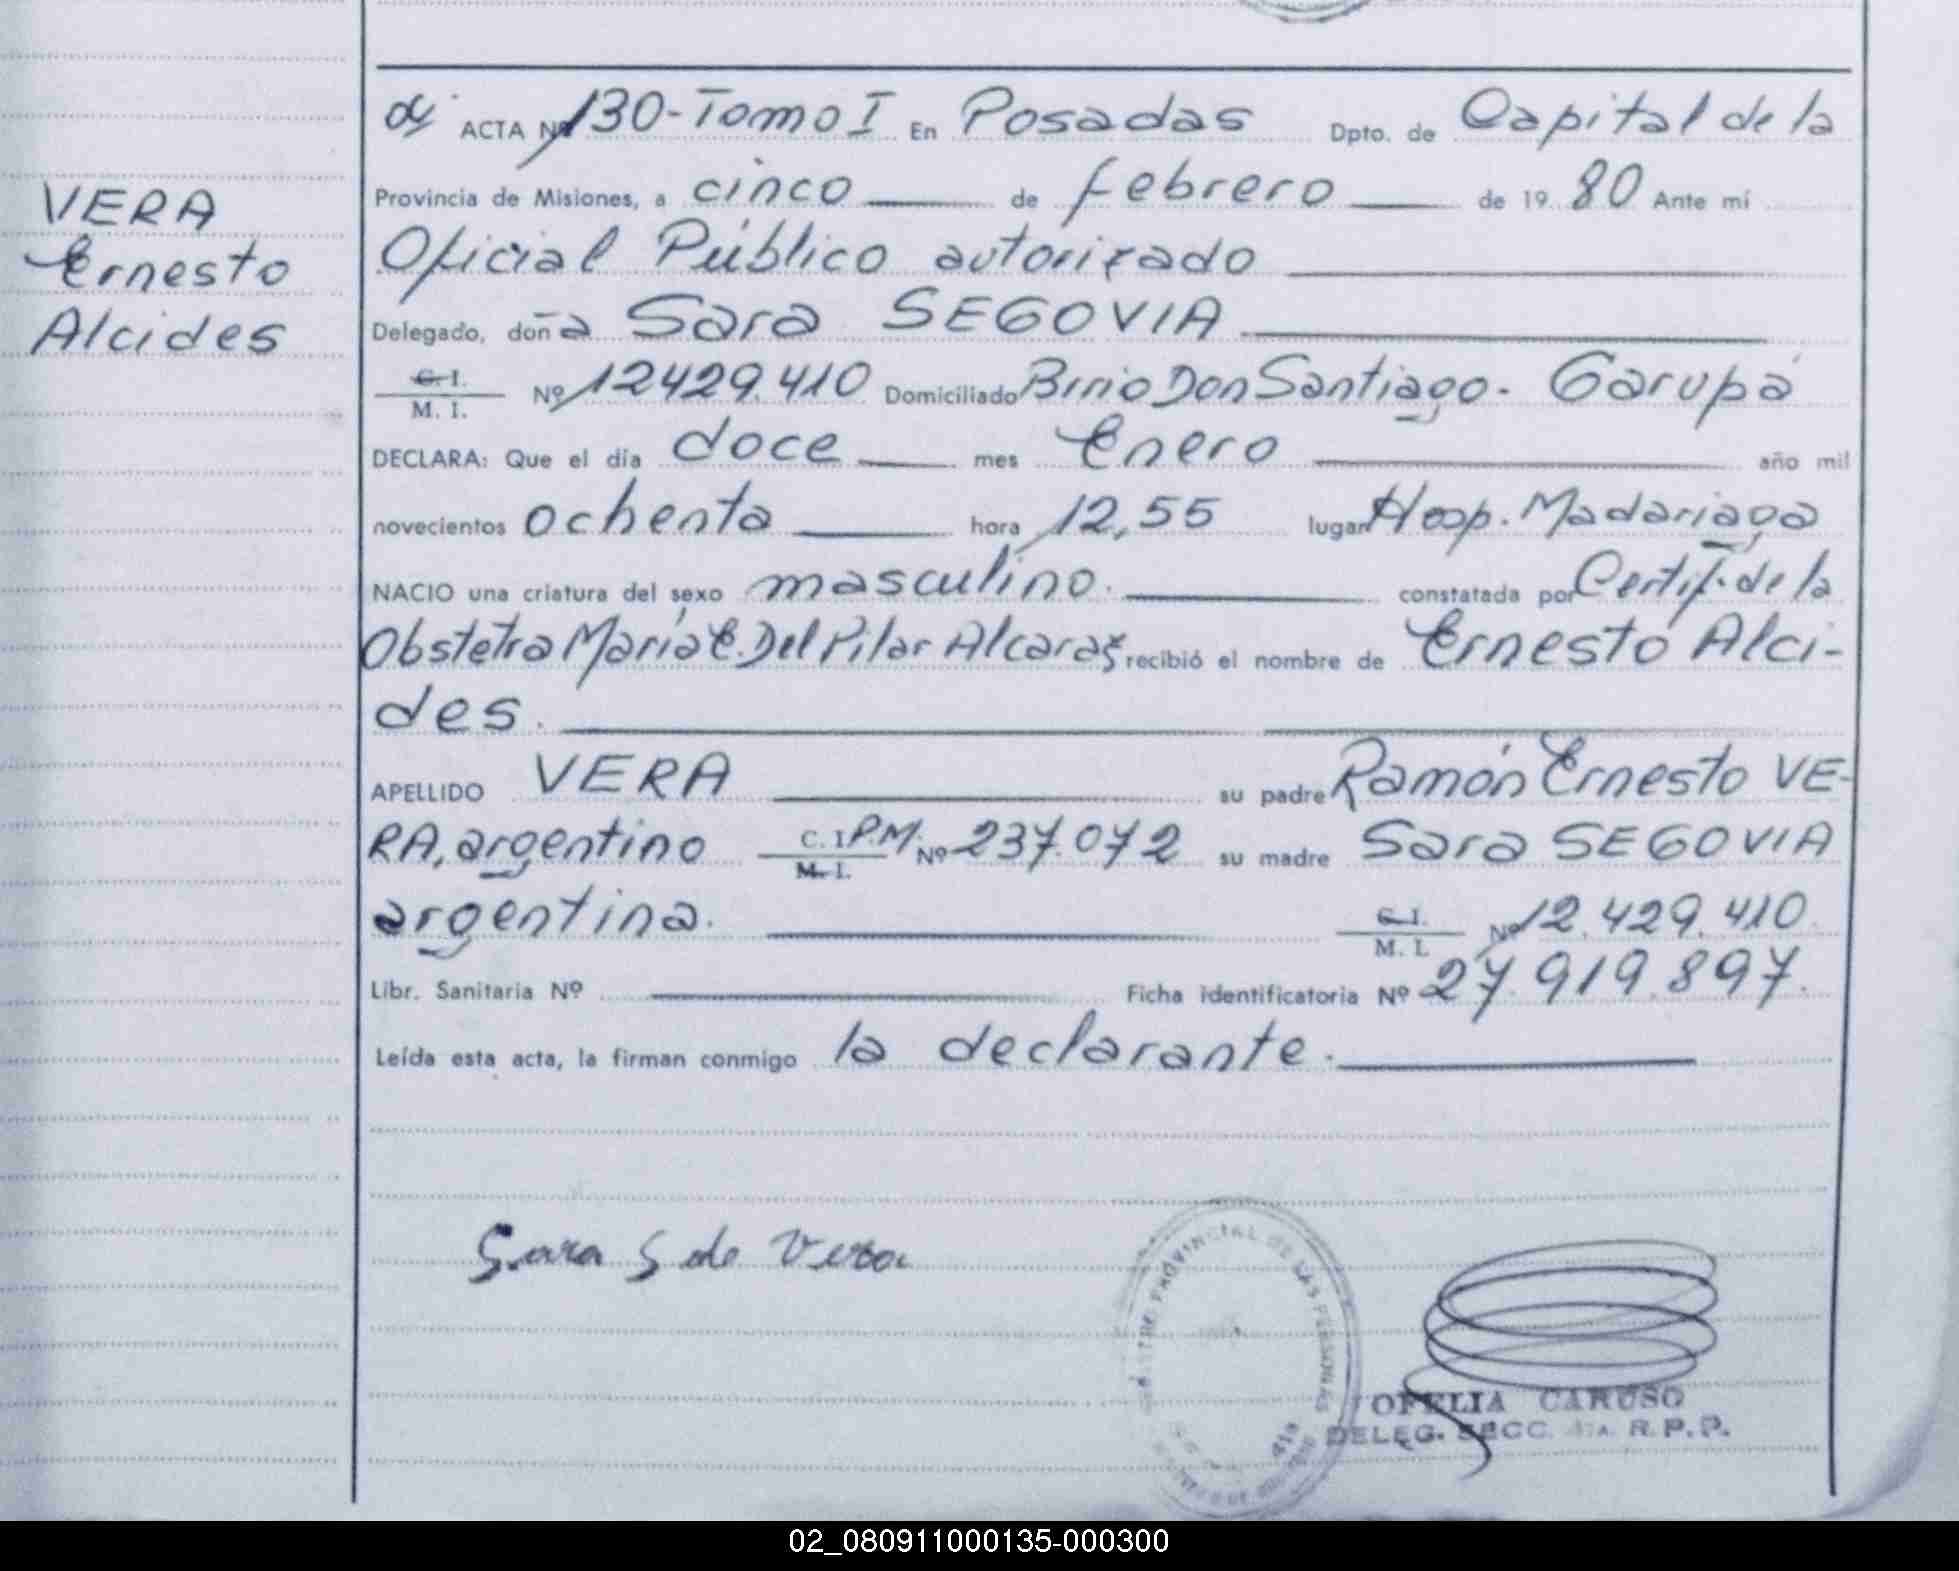 VERA
Ernesto
Alcides
ACTA Nº 130-Tomo I En Posadas Dpto. de Capital de la
Provincia de Misiones, a cinco de febrero de 1980 Ante mí
Oficial Público autorizado
Delegado, doña Sara SEGOVIA
C. I.
M. I.
Nº 12429.410 Domiciliado Brrio Don Santiago- Garupá
DECLARA: Que el día doce mes Enero año mil
novecientos ochenta hora 12,55 lugar Hosp. Madariaga
NACIO una criatura del sexo masculino. constatada por Certif. de la
Obstetra María C. Del Pilar Alcaraz recibió el nombre de Ernesto Alci-
des.
APELLIDO VERA su padre Ramón Ernesto VE-
RA, argentino C. I. P.M. Nº 237.072 su madre Sara SEGOVIA
M. I.
argentina. C. I. Nº 12.429.410
M. I.
Libr. Sanitaria Nº Ficha identificatoria Nº 27.919.897.
Leída esta acta, la firman conmigo la declarante.
Sara S de Vera
PROVINCIAL DE LAS PERSONAS
OFELIA CARUSO
DELEG. SECC. R. P. P.
02_080911000135-000300